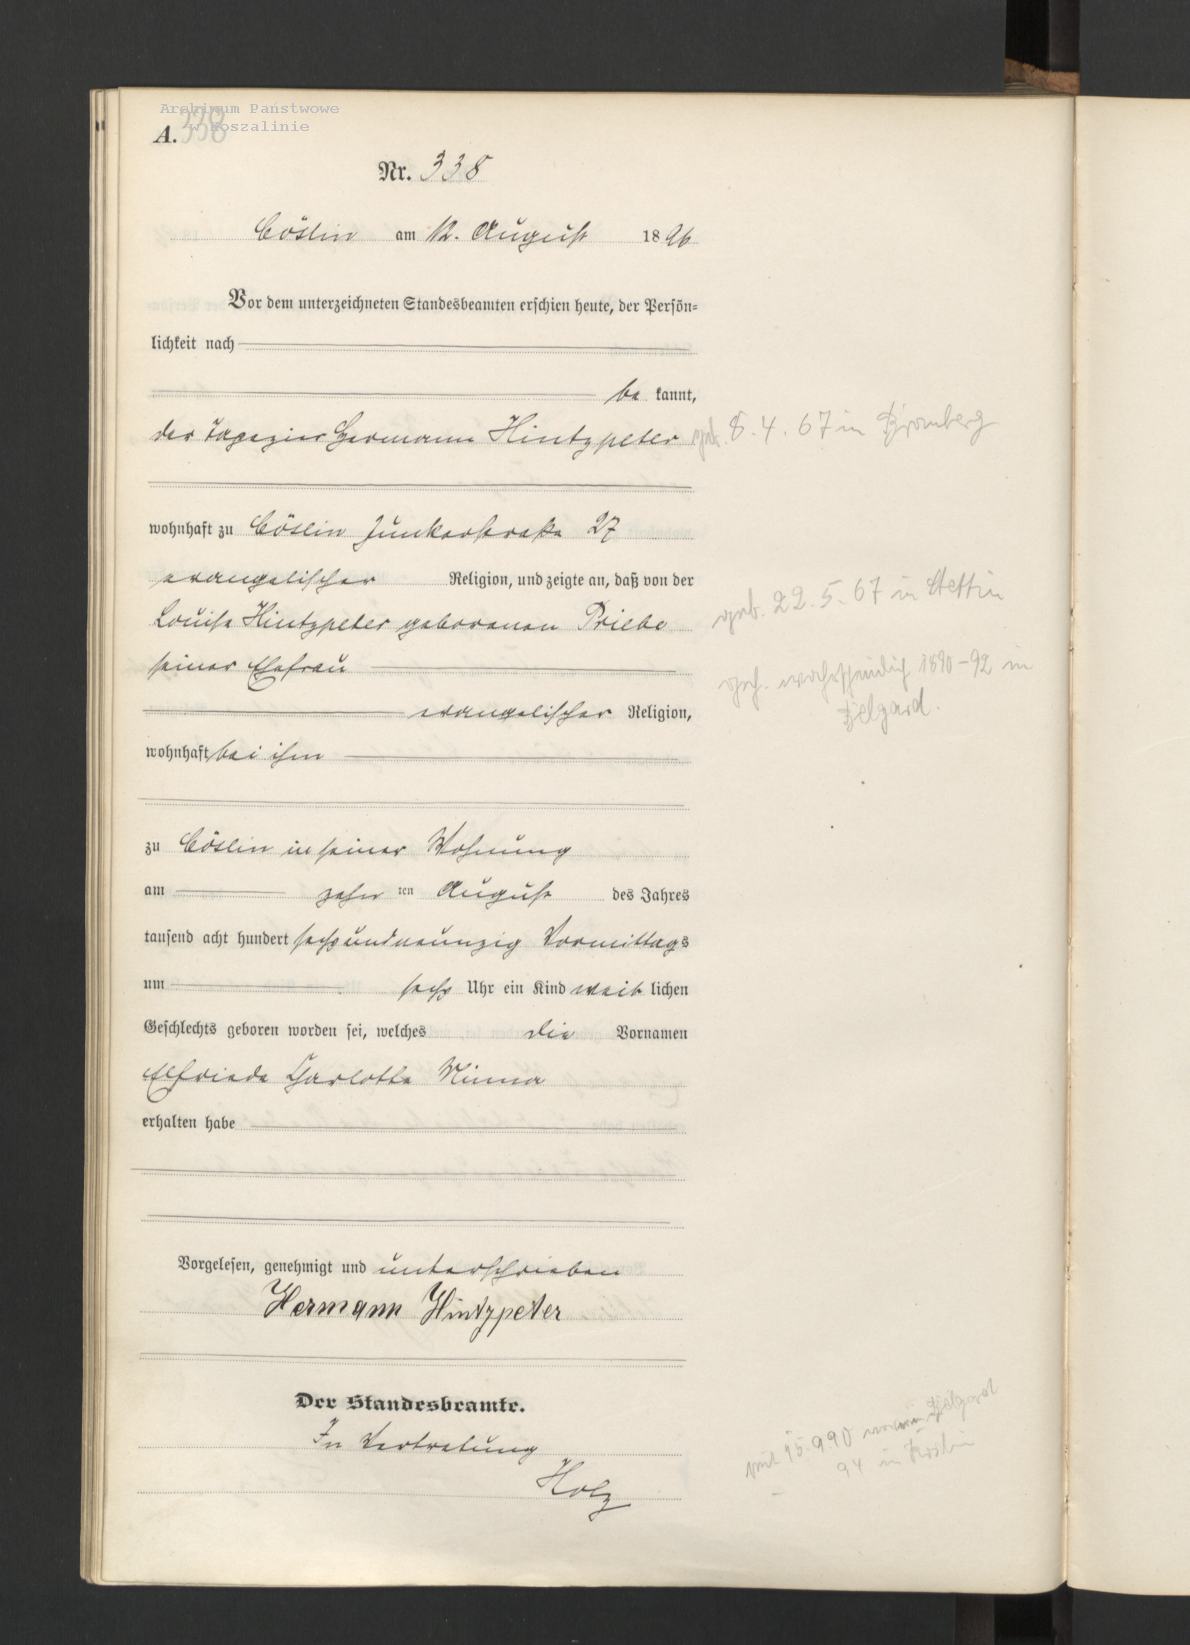 Archiwum Państwowe
w Koszalinie
A. 338
Nr. 338
Cöslin am 12. August 1896
Vor dem unterzeichneten Standesbeamten erschien heute, der Persön-
lichkeit nach
be kannt,
der Tapezier Hermann Hintzpeter
geb. 8.4.67 in Bromberg
wohnhaft zu Cöslin Junkerstraße 27
evangelischer Religion, und zeigte an, daß von der
Louise Hintzpeter geborenen Priebe
geb. 22.5.67 in Stettin
seiner Ehefrau
gesch. wahrscheinlich 1890-92 in
Belgard.
evangelischer Religion,
wohnhaft bei ihm
zu Cöslin in seiner Wohnung
am zehn ten August des Jahres
tausend acht hundert sechsundneunzig Vormittags
um sechs Uhr ein Kind weib lichen
Geschlechts geboren worden sei, welches die Vornamen
Elfriede Charlotte Minna
erhalten habe
Vorgelesen, genehmigt und unterschrieben
Hermann Hintzpeter
Der Standesbeamte.
In Vertretung
Holz
Belgard
94 in Köslin